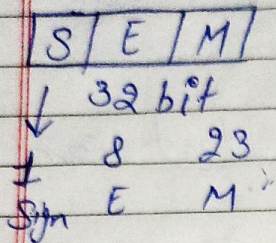 S E M
32 bit
1 8 23
Sign E M